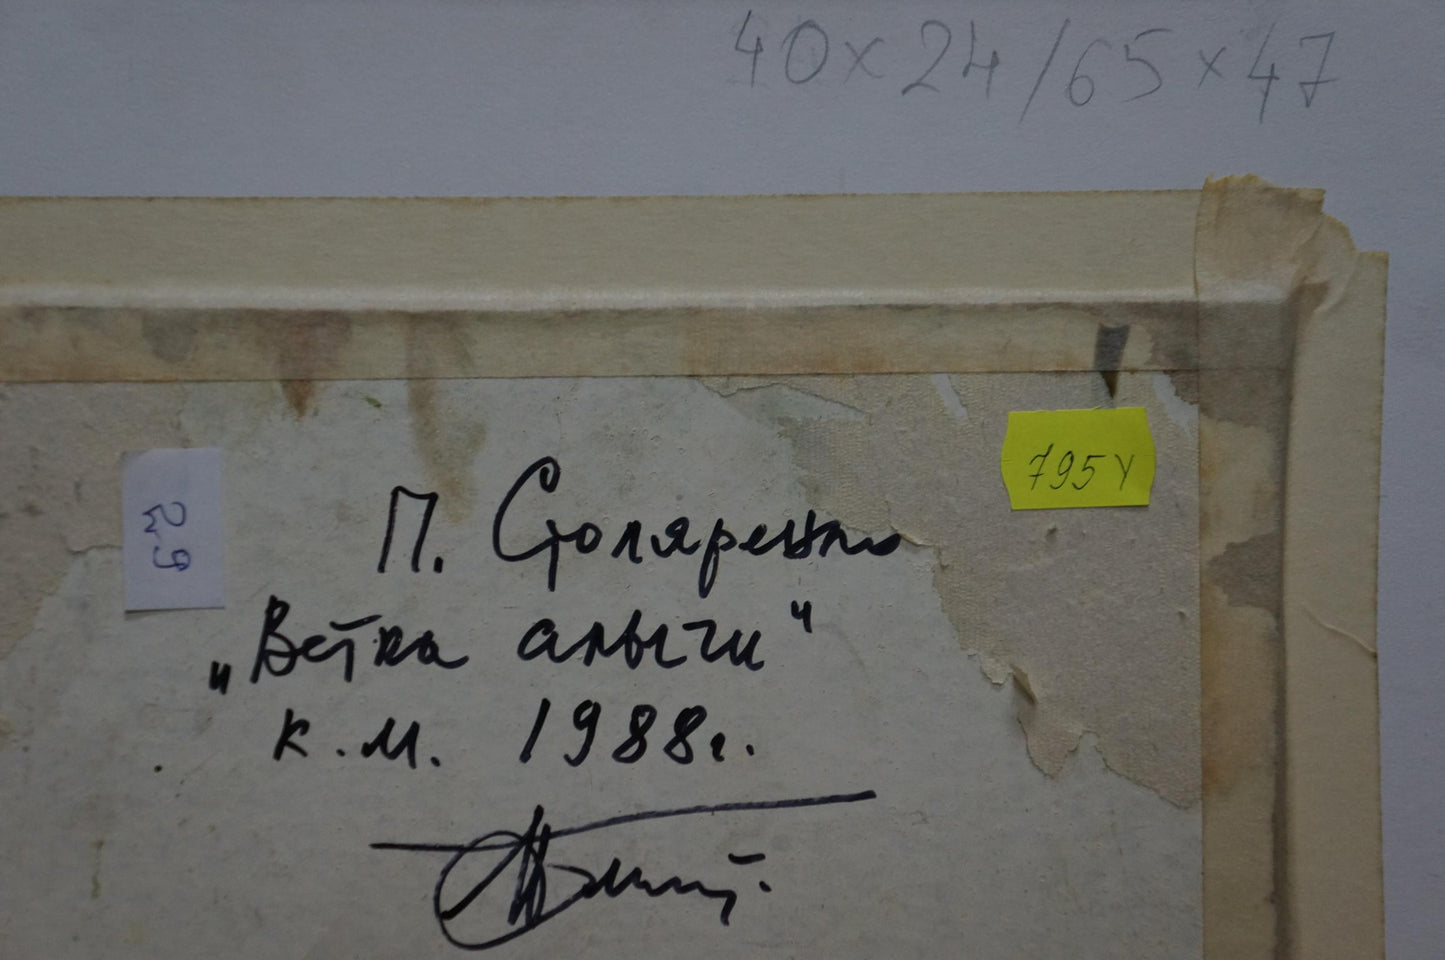 40x24/65x47
795У
29
П. Столяренко
„Ветка алычи"
к.м. 1988г.